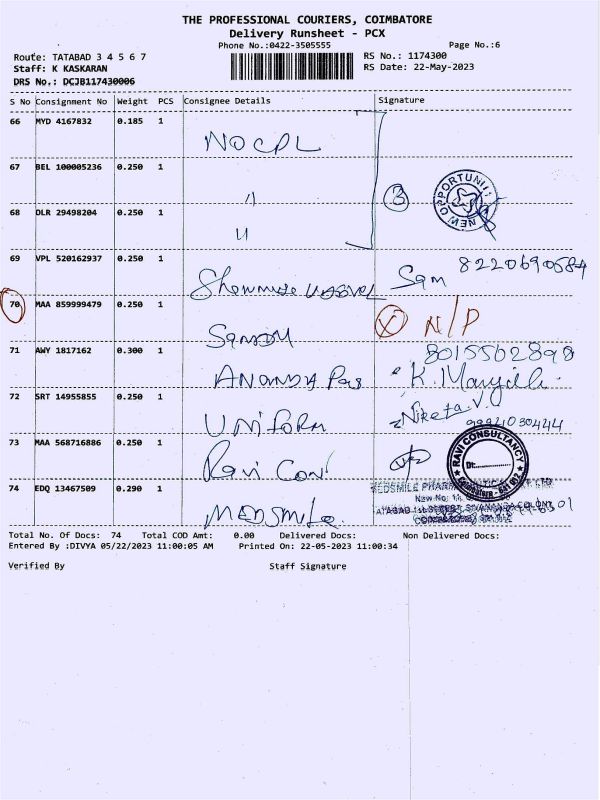 THE PROFESSIONAL COURIERS, COIMBATORE
Delivery Runsheet - PCX
Phone No.:0422-3505555
Page No.:6
Route: TATABAD 3 4 5 6 7
RS No.: 1174300
Staff: K KASKARAN
RS Date: 22-May-2023
DRS No.: DCJB117430006
S No Consignment No Weight PCS Consignee Details Signature
66 MYD 4167832 0.185 1
NOCPL
67 BEL 100005236 0.250 1
"
3
NEW OPPORTUNITI
68 DLR 29498204 0.250 1
"
69 VPL 520162937 0.250 1
Sam 8220690584
70 MAA 859999479 0.250 1
X N/P
71 AWY 1817162 0.300 1
8015562898
ANANDA Pas
72 SRT 14955855 0.250 1
Niketa V.
9994030444
UNIFORM
73 MAA 568716886 0.250 1
Ravi Con
RAVI CONSULTANCY
Dt:
74 EDQ 13467509 0.290 1
MEDSMILE
Total No. Of Docs: 74 Total COD Amt: 0.00 Delivered Docs: Non Delivered Docs:
Entered By :DIVYA 05/22/2023 11:00:05 AM Printed On: 22-05-2023 11:00:34
Verified By Staff Signature